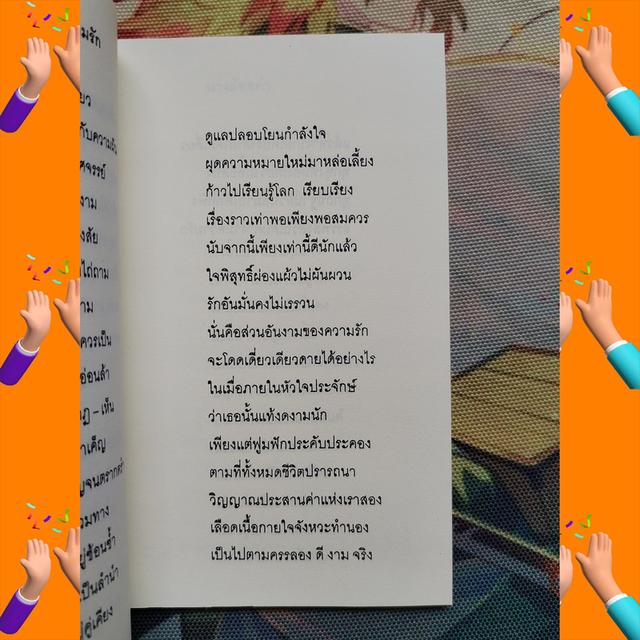 มรัก
กับความฝัน
งาม
งสัย
ไถ่ถาม
าม
ควรเป็น
อ่อนล้า
– เห็น
าเค็ญ
วมทาง
ป็นลำนำ
คู่เคียง
ดูแลปลอบโยนกำลังใจ
ผุดความหมายใหม่มาหล่อเลี้ยง
ก้าวไปเรียนรู้โลก เรียบเรียง
เรื่องราวเท่าพอเพียงพอสมควร
นับจากนี้เพียงเท่านี้ดีนักแล้ว
ใจพิสุทธิ์ผ่องแผ้วไม่ผันผวน
รักอันมั่นคงไม่เรรวน
นั่นคือส่วนอันงามของความรัก
จะโดดเดี่ยวเดียวดายได้อย่างไร
ในเมื่อภายในหัวใจประจักษ์
ว่าเธอนั้นแท้งดงามนัก
เพียงแต่ฟูมฟักประคับประคอง
ตามที่ทั้งหมดชีวิตปรารถนา
วิญญาณประสานค่าแห่งเราสอง
เลือดเนื้อกายใจจังหวะทำนอง
เป็นไปตามครรลอง ดี งาม จริง